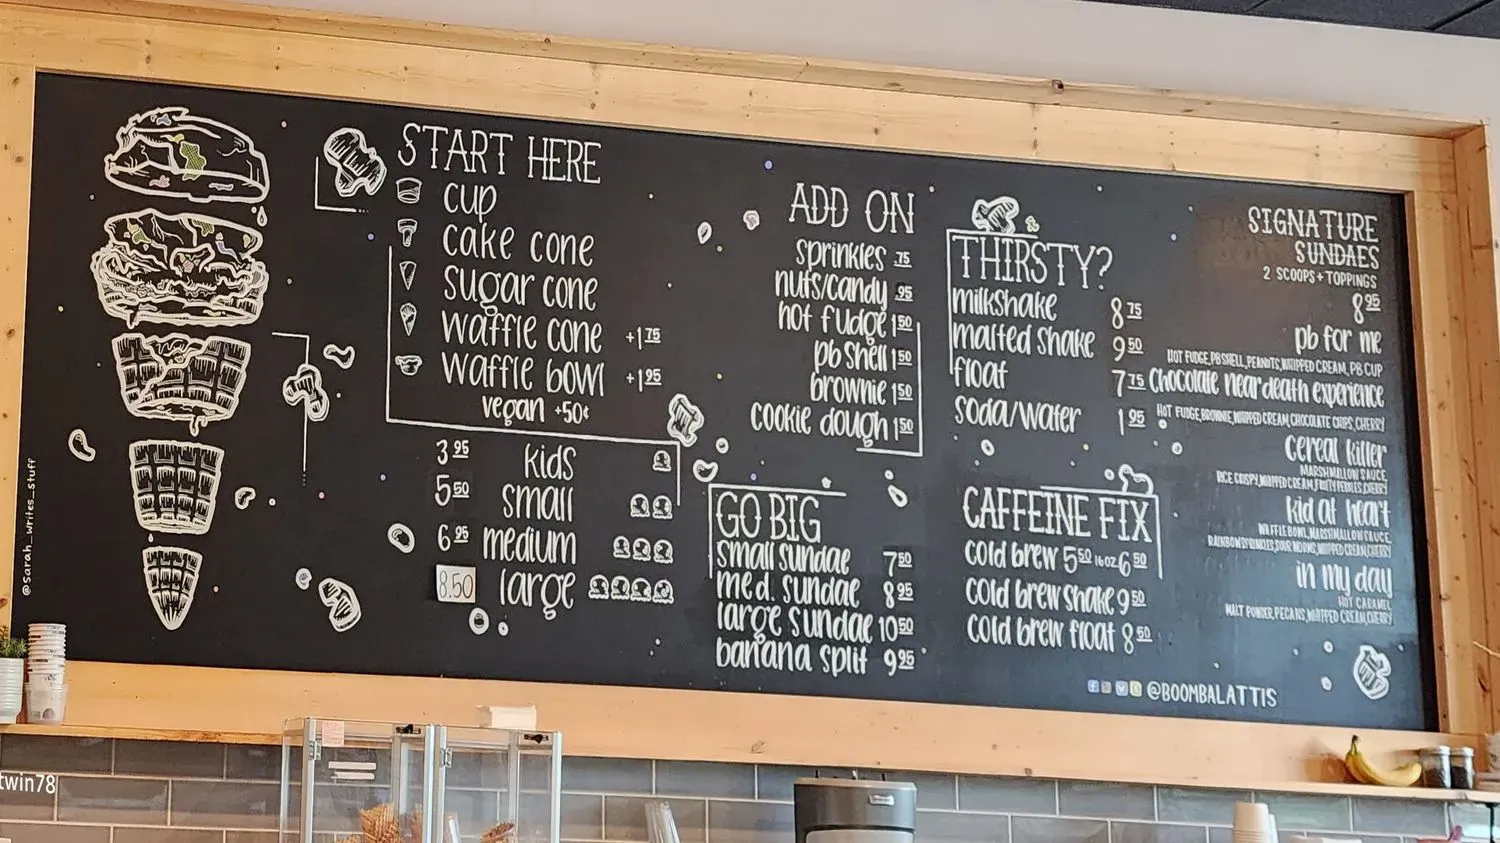 START HERE
cup
cake cone
sugar cone
waffle cone +1 75
waffle bowl +1 95
vegan +50¢
3 95 kids
5 50 small
6 95 medium
8.50 large
ADD ON
sprinkles .75
nuts/candy .95
hot fudge 1 50
pb shell 1 50
brownie 1 50
cookie dough 1 50
GO BIG
small sundae 7 50
med. sundae 8 95
large sundae 10 50
banana split 9 95
THIRSTY?
milkshake 8 75
malted shake 9 50
float 7 75
soda/water 1 95
CAFFEINE FIX
cold brew 5 50 16oz 6 50
cold brew shake 9 50
cold brew float 8 50
@BOOMBALATTIS
SIGNATURE
SUNDAES
2 SCOOPS + TOPPINGS
8 95
pb for me
HOT FUDGE, PB SHELL, PEANUTS, WHIPPED CREAM, PB CUP
Chocolate near death experience
HOT FUDGE, BROWNIE, WHIPPED CREAM, CHOCOLATE CHIPS, CHERRY
cereal killer
MARSHMALLOW SAUCE,
RICE CRISPY, WHIPPED CREAM, FRUITY PEBBLES, CHERRY
kid at heart
WAFFLE BOWL, MARSHMALLOW SAUCE,
RAINBOW SPRINKLES, SOUR WORMS, WHIPPED CREAM, CHERRY
in my day
HOT CARAMEL
MALT POWDER, PECANS, WHIPPED CREAM, CHERRY
@sarah_writes_stuff
twin78